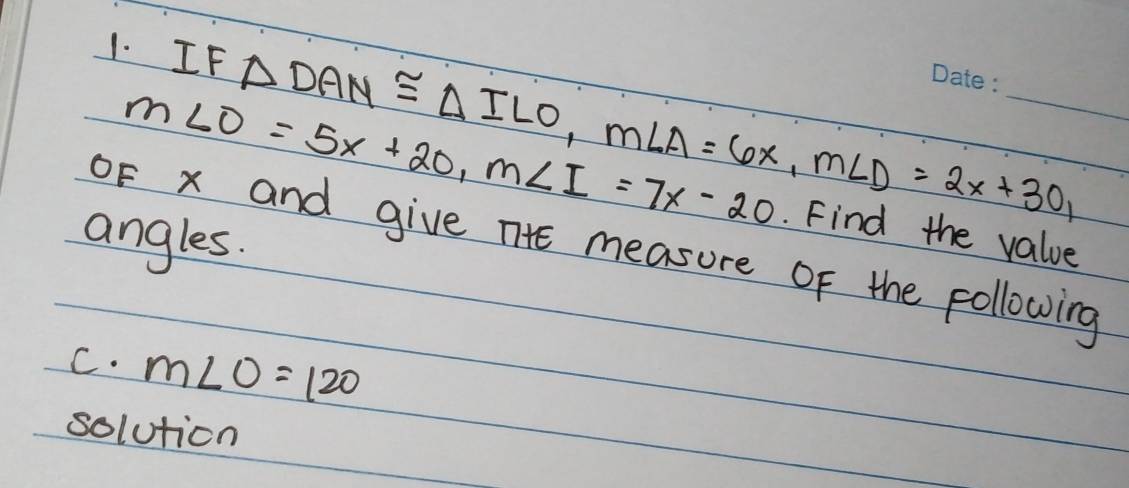 Date :
1. IF Δ DAN ≅ Δ ILO, m∠A = 6x, m∠D = 2x + 30,
m∠O = 5x + 20, m∠I = 7x - 20. Find the value
OF x and give THE measure OF the following
angles.
C. m∠O = 120
solution